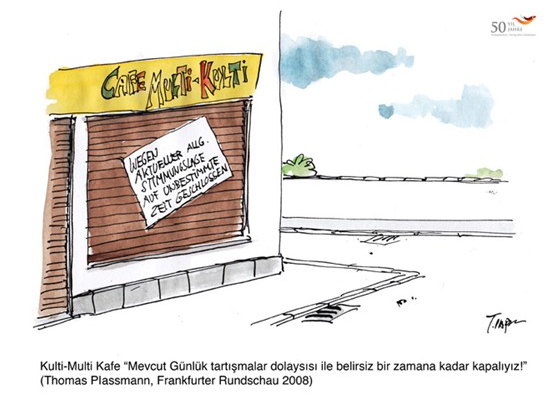 50 YIL
JAHRE
CAFE MULTi-KULTi
WEGEN
AKTUELLER ALLG.
STIMMUNGSLAGE
AUF UNBESTIMMTE
ZEIT GESCHLOSSEN
Kulti-Multi Kafe “Mevcut Günlük tartışmalar dolaysısı ile belirsiz bir zamana kadar kapalıyız!”
(Thomas Plassmann, Frankfurter Rundschau 2008)